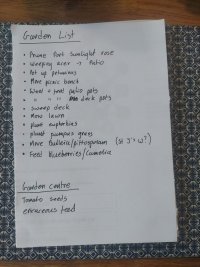 Garden List
• Prune Port Sunlight rose
• weeping acer → Patio
• Pot up petunias
• Move picnic bench
• Weed + feed patio pots
• " " " deck pots
• sweep deck
• Mow lawn
• plant euphorbias
• plant pampas grass
• Move Budleia/pittosporum (st J's w?)
• Feed Blueberries/Camelia
Garden centre
Tomato seeds
ericaceous feed